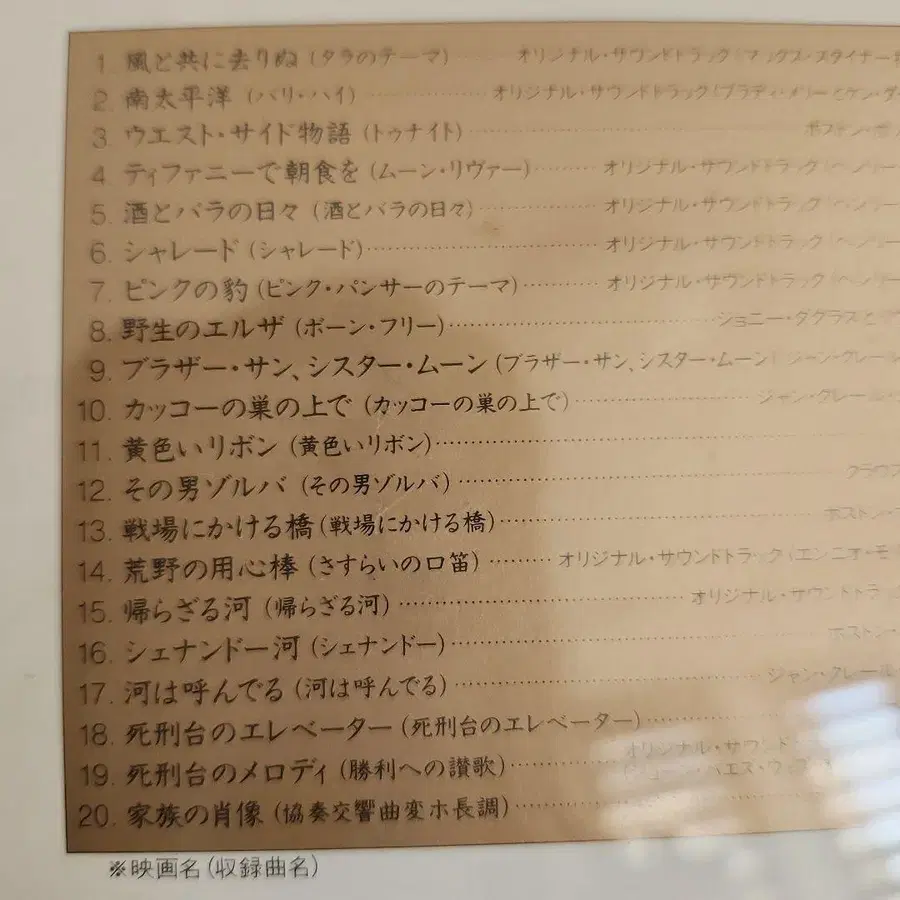 1. 風と共に去りぬ (タラのテーマ)………オリジナル・サウンドトラック(マックス・スタイナー
2. 南太平洋 (バリ・ハイ)………オリジナル・サウンドトラック(
3. ウエスト・サイド物語 (トゥナイト)………ボストン・ポ
4. ティファニーで朝食を (ムーン・リヴァー)………オリジナル・サウンドトラック(ヘンリー
5. 酒とバラの日々 (酒とバラの日々)………オリジナル・サウンドトラック(ヘンリー
6. シャレード (シャレード)………オリジナル・サウンドトラック(ヘンリー
7. ピンクの豹 (ピンク・パンサーのテーマ)………オリジナル・サウンドトラック(ヘンリー
8. 野生のエルザ (ボーン・フリー)………ジョニー・ダグラスと
9. ブラザー・サン、シスター・ムーン (ブラザー・サン、シスター・ムーン) ジャン・クレール
10. カッコーの巣の上で (カッコーの巣の上で)………ジャン・クレール
11. 黄色いリボン (黄色いリボン)………
12. その男ゾルバ (その男ゾルバ)………クラウス
13. 戦場にかける橋 (戦場にかける橋)………ボストン・
14. 荒野の用心棒 (さすらいの口笛)………オリジナル・サウンドトラック(エンニオ・モ
15. 帰らざる河 (帰らざる河)………オリジナル・サウンドトラッ
16. シェナンドー河 (シェナンドー)………ボストン・
17. 河は呼んでる (河は呼んでる)………ジャン・クレール
18. 死刑台のエレベーター (死刑台のエレベーター)………
19. 死刑台のメロディ (勝利への讃歌)………オリジナル・サウンド
20. 家族の肖像 (協奏交響曲変ホ長調)………
※映画名(収録曲名)